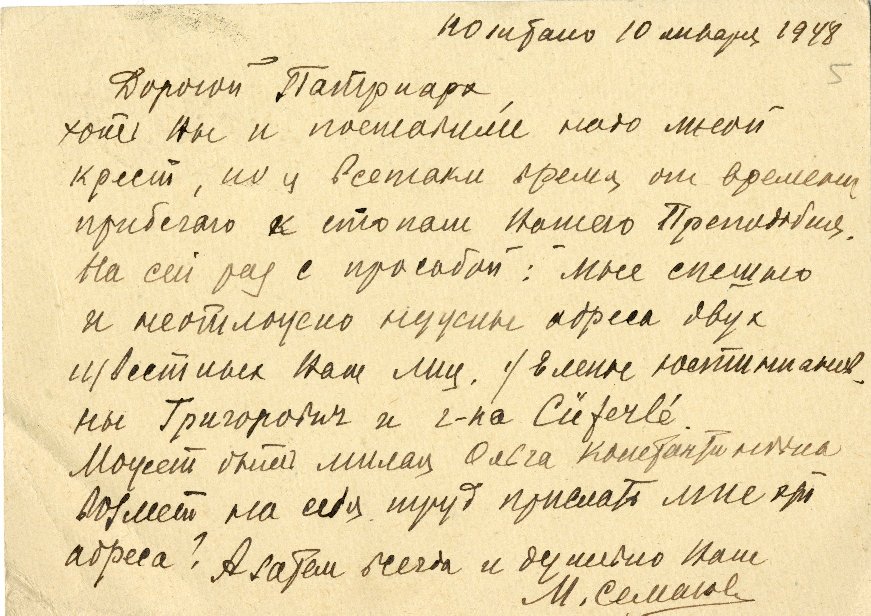 10 января 1948
5
Дорогой Патриарх
хоть Вы и поставили надо мной
крест, но я всетаки время от времени
прибегаю к стопам Вашего Преподобия.
На сей раз с просьбой: мне спешно
и неотложно нужны адреса двух
известных Вам лиц. Елены
ны Григорович и г-на
Может быть милая Ольга Константиновна
возмет на себя труд прислать мне эти
адреса? А затем всегда и душевно Ваш
М. Семенов